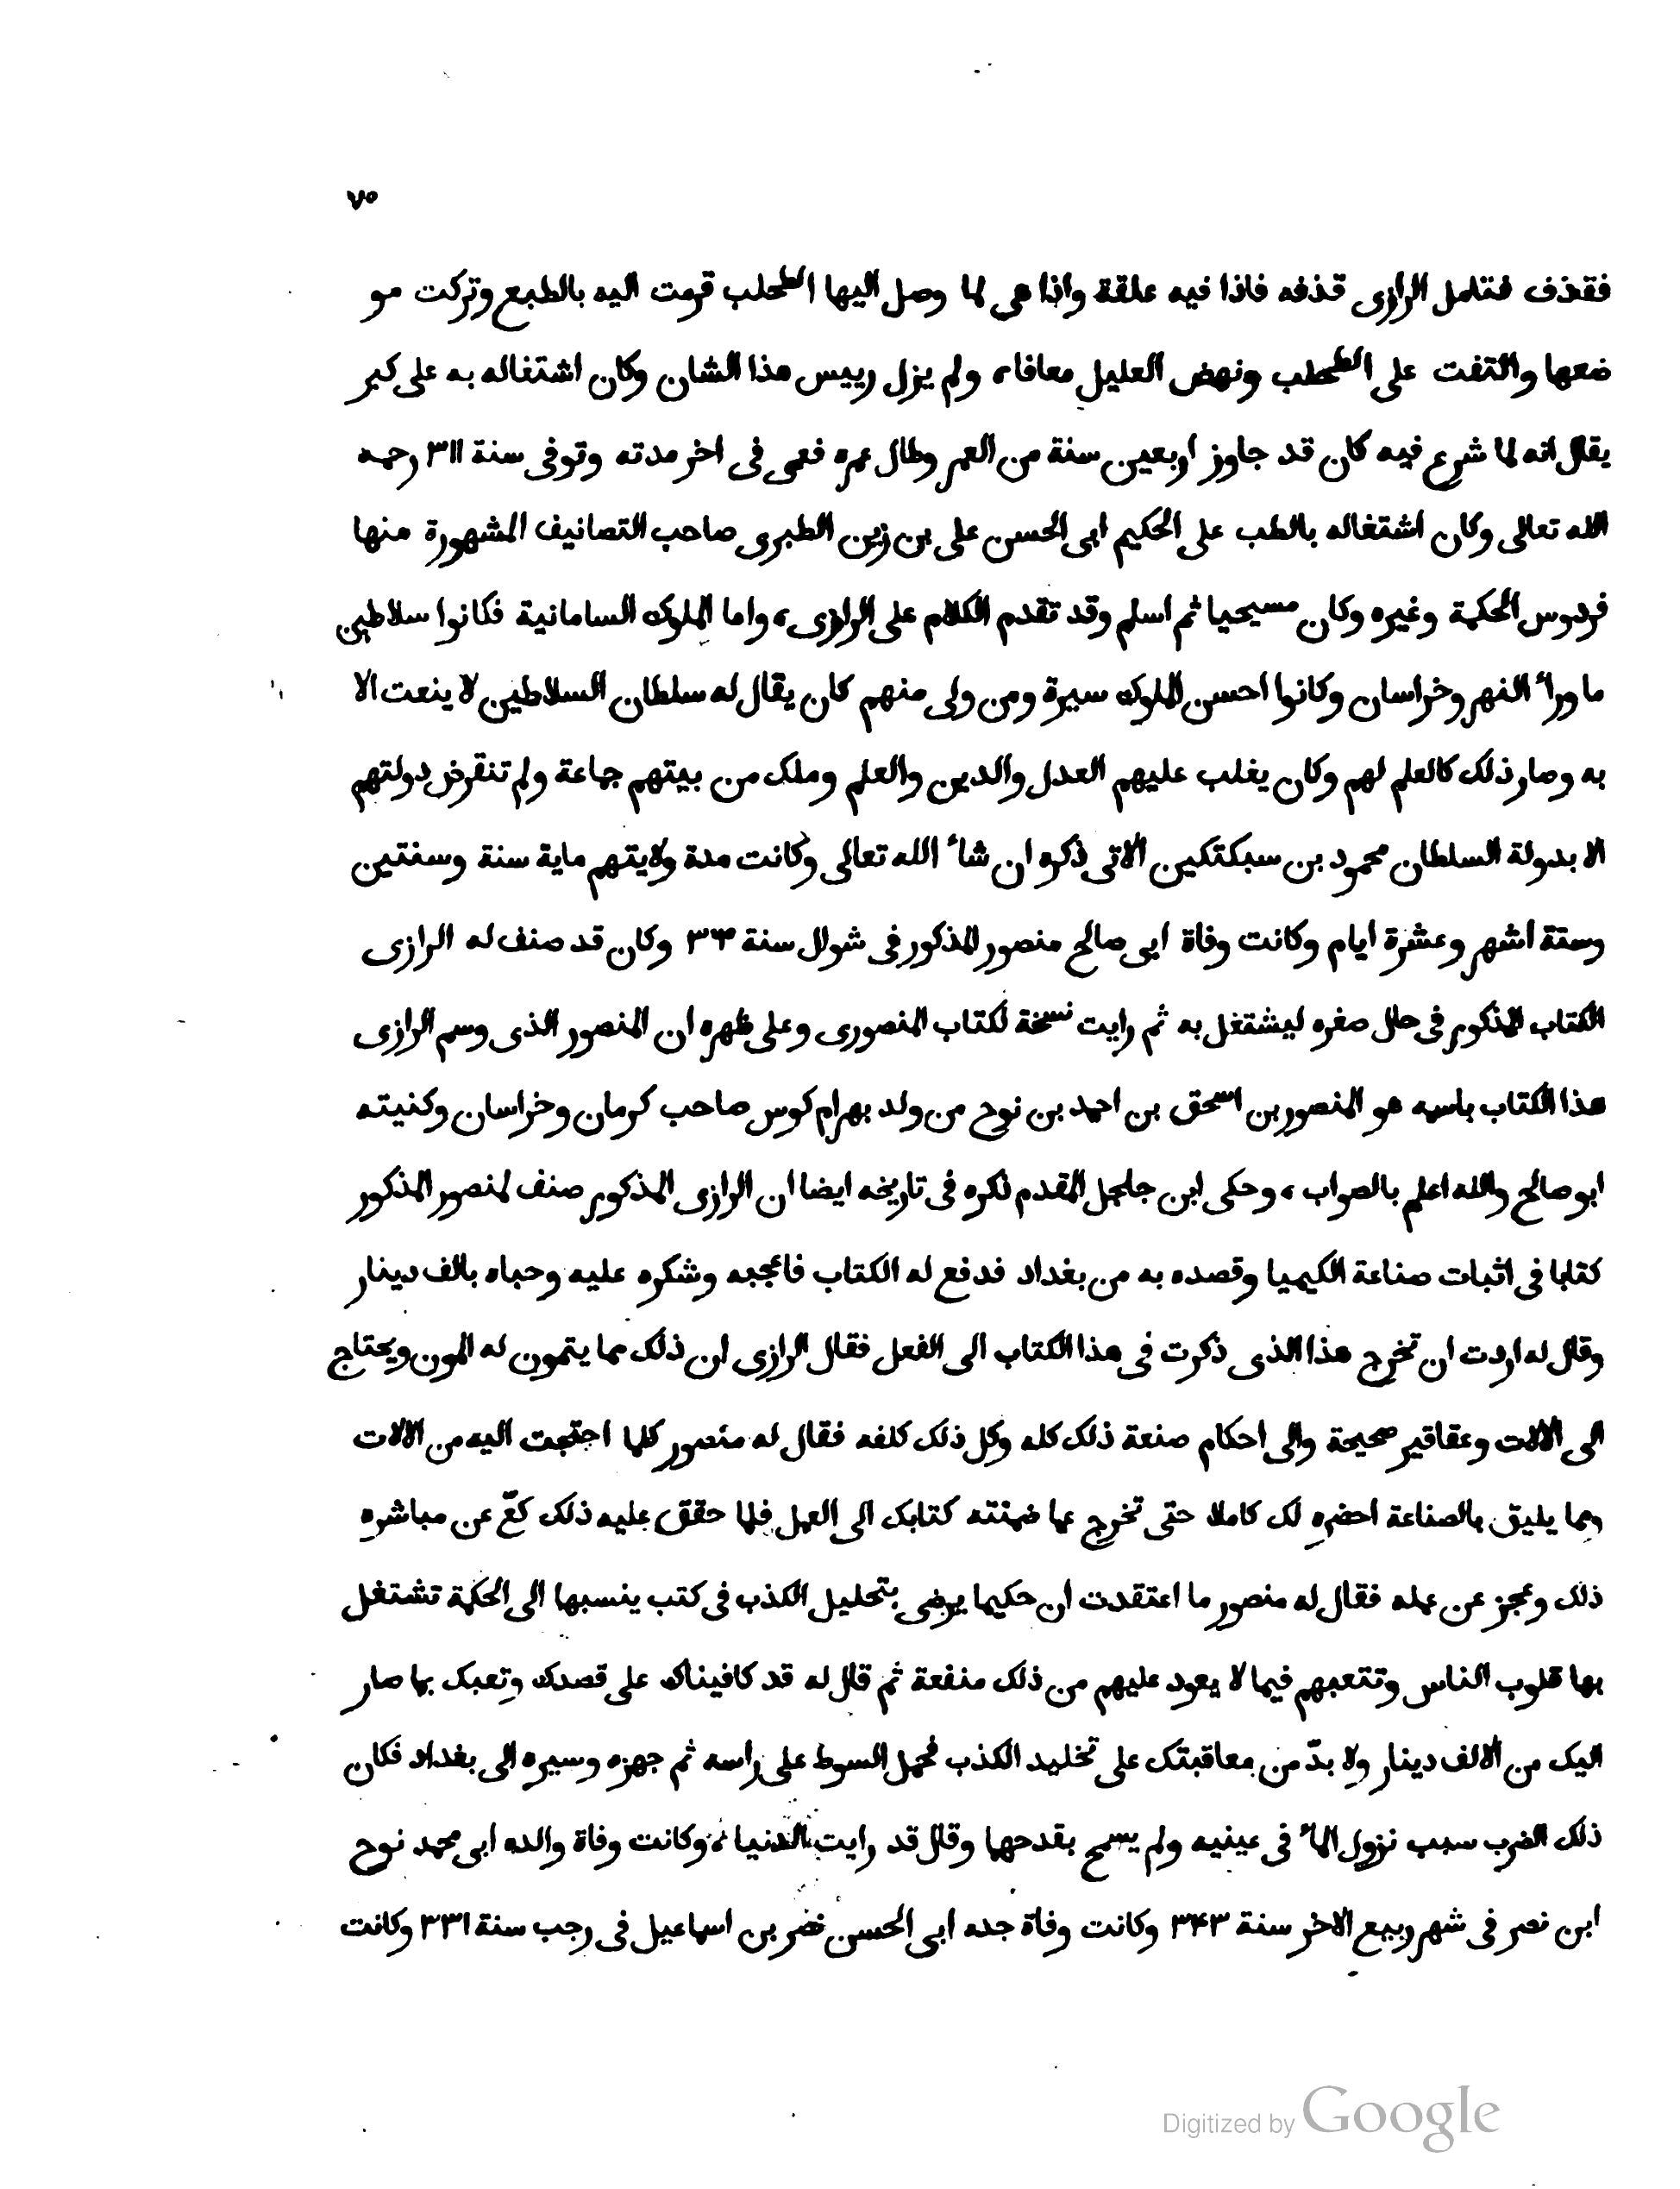 ٧٥
فقذف فتامل الرازى قذفه فاذا فيه علقة واذا هى لما وصل اليها الطحلب قرمت اليه بالطبع وتركت مو
ضعها والتفت على الطحلب ونهض العليل معافا، ولم يزل رييس هذا الشان وكان اشتغاله به على كبر
يقال انه لما شرع فيه كان قد جاوز اربعين سنة من العمر وطال عمره فعمى فى اخر مدته وتوفى سنة ٣١١ رحمه
الله تعالى وكان اشتغاله بالطب على الحكيم ابى الحسن على بن زين الطبرى صاحب التصانيف المشهورة منها
فردوس الحكمة وغيره وكان مسيحيا ثم اسلم وقد تقدم الكلام على الرازى، واما الملوك السامانية فكانوا سلاطين
ما وراء النهر وخراسان وكانوا احسن الملوك سيرة ومن ولى منهم كان يقال له سلطان السلاطين لا ينعت الا
به وصار ذلك كالعلم لهم وكان يغلب عليهم العدل والدين والعلم وملك من بيتهم جماعة ولم تنقرض دولتهم
الا بدولة السلطان محمود بن سبكتكين الاتى ذكره ان شاء الله تعالى وكانت مدة ولايتهم ماية سنة وسنتين
وستة اشهر وعشرة ايام وكانت وفاة ابى صالح منصور المذكور فى شوال سنة وكان قد صنف له الرازى
الكتاب المذكور فى حال صغره ليشتغل به ثم رايت نسخة لكتاب المنصورى وعلى ظهره ان المنصور الذى وسم الرازى
هذا الكتاب باسمه هو المنصور بن اسحق بن احمد بن نوح من ولد بهرام كوس صاحب كرمان وخراسان وكنيته
ابو صالح والله اعلم بالصواب، وحكى ابن جلجل المقدم ذكره فى تاريخه ايضا ان الرازى المذكور صنف لمنصور المذكور
كتابا فى اثبات صناعة الكيميا وقصده به من بغداد فدفع له الكتاب فاعجبه وشكره عليه وحباه بالف دينار
وقال له اردت ان تخرج هذا الذى ذكرت فى هذا الكتاب الى الفعل فقال الرازى ان ذلك مما يتمون له المون ويحتاج
الى الالات وعقاقير صحيحة والى احكام صنعة ذلك كله وكل ذلك كلفه فقال له منصور كلما احتجت اليه من الالات
ومما يليق بالصناعة احضره لك كاملا حتى تخرج عما ضمنته كتابك الى العمل فلما حقق عليه ذلك كعّ عن مباشره
ذلك وعجز عن عمله فقال له منصور ما اعتقدت ان حكيما يرضى بتحليل الكذب فى كتب ينسبها الى الحكمة تشتغل
بها قلوب الناس وتتعبهم فيما لا يعود عليهم من ذلك منفعة ثم قال له قد كافيناك على قصدك وتعبك بما صار
اليك من الالف دينار ولا بدّ من معاقبتك على تخليد الكذب فحمل السوط على راسه ثم جهزه وسيره الى بغداد فكان
ذلك الضرب سبب نزول الماء فى عينيه ولم يسمح بقدحهما وقال قد رايت الدنيا، وكانت وفاة والده ابى محمد نوح
ابن نصر فى شهر ربيع الاخر سنة ٣٤٣ وكانت وفاة جده ابى الحسن نصر بن اسماعيل فى رجب سنة ٣٣١ وكانت
Digitized by Google